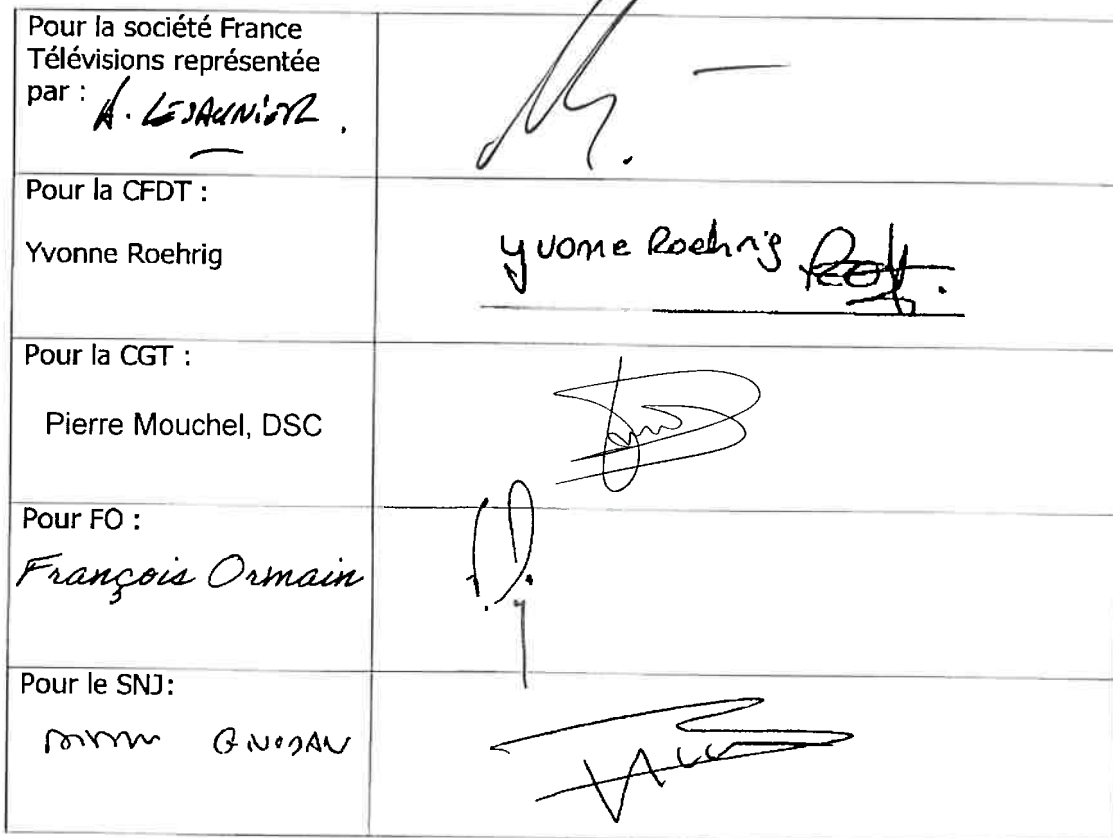 Pour la société France
Télévisions représentée
par : A. LESAUNIER.
Pour la CFDT :
Yvonne Roehrig
Yvonne Roehrig
Pour la CGT :
Pierre Mouchel, DSC
Pour FO :
François Ormain
Pour le SNJ: